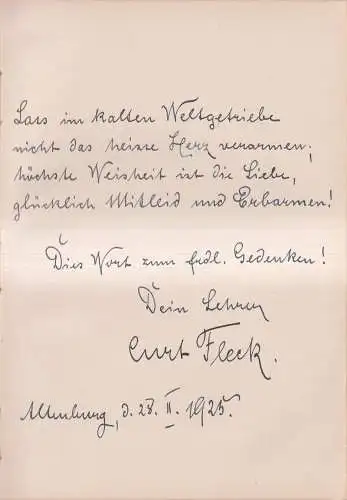 Lass im kalten Weltgetriebe
nicht das heisse Herz verarmen;
höchste Weisheit ist die Liebe,
glücklich Mitleid und Erbarmen!
Dies Wort zum frdl. Gedenken!
Dein Lehrer
Curt Fleck.
Altenburg, d. 28. II. 1925.